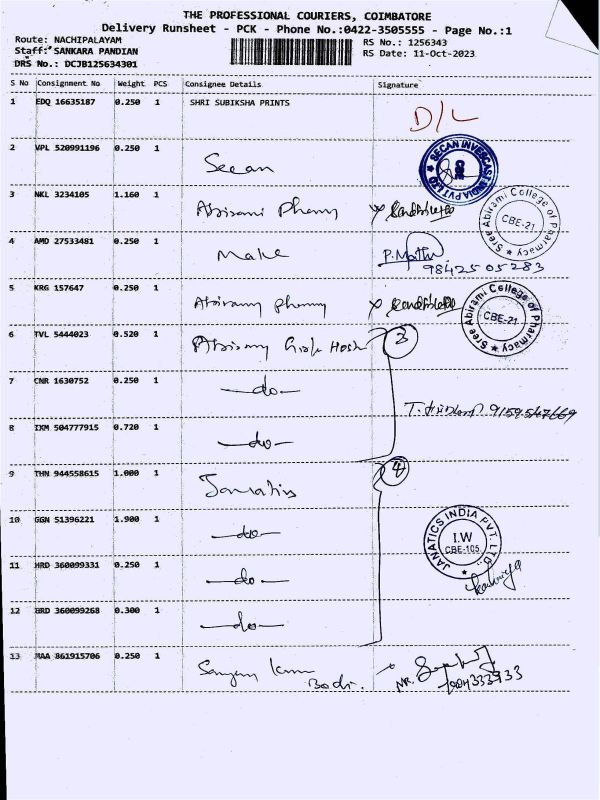 THE PROFESSIONAL COURIERS, COIMBATORE
Delivery Runsheet - PCK - Phone No.:0422-3505555 - Page No.:1
Route: NACHIPALAYAM
RS No.: 1256343
Staff: SANKARA PANDIAN
RS Date: 11-Oct-2023
DRS No.: DCJB125634301
S No Consignment No Weight PCS Consignee Details Signature
1 EDQ 16635187 0.250 1 SHRI SUBIKSHA PRINTS D/L
2 VPL 520991196 0.250 1 Secan
SECAN INVENCAST INDIA PVT LTD
CBE
3 NKL 3234105 1.160 1
Sree Abirami College of Pharmacy
CBE-21
4 AMD 27533481 0.250 1 Make P.Mathu
98425 05283
5 KRG 157647 0.250 1
Sree Abirami College of Pharmacy
CBE-21
6 TVL 5444023 0.520 1 3
7 CNR 1630752 0.250 1 -do-
9159547669
8 IXM 504777915 0.720 1 -do-
9 THN 944558615 1.000 1 Janatics 4
10 GGN 51396221 1.900 1 -do-
JANATICS INDIA PVT. LTD.,
I.W
CBE-105
11 HRD 360099331 0.250 1 -do-
12 BRD 360099268 0.300 1 -do-
13 MAA 861915706 0.250 1